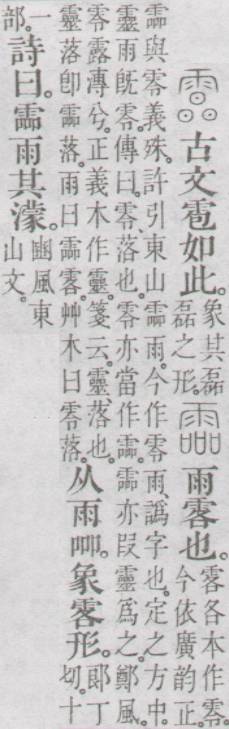 古文雹如此。象其磊磊之形。霝雨䨩也。䨩各本作零。今依廣韵正。
霝與零義殊。許引東山霝雨。今作零雨、譌字也。定之方中。
靈雨旣零。傳曰。零、落也。零亦當作霝。霝亦叚靈爲之。鄭風。
零露漙兮。正義本作靈。箋云。靈、落也。
靈落卽霝落。雨曰霝䨩。艸木曰零落。从雨𠱠。象䨩形。郎丁切。十
一部。詩曰。霝雨其濛。豳風東山文。